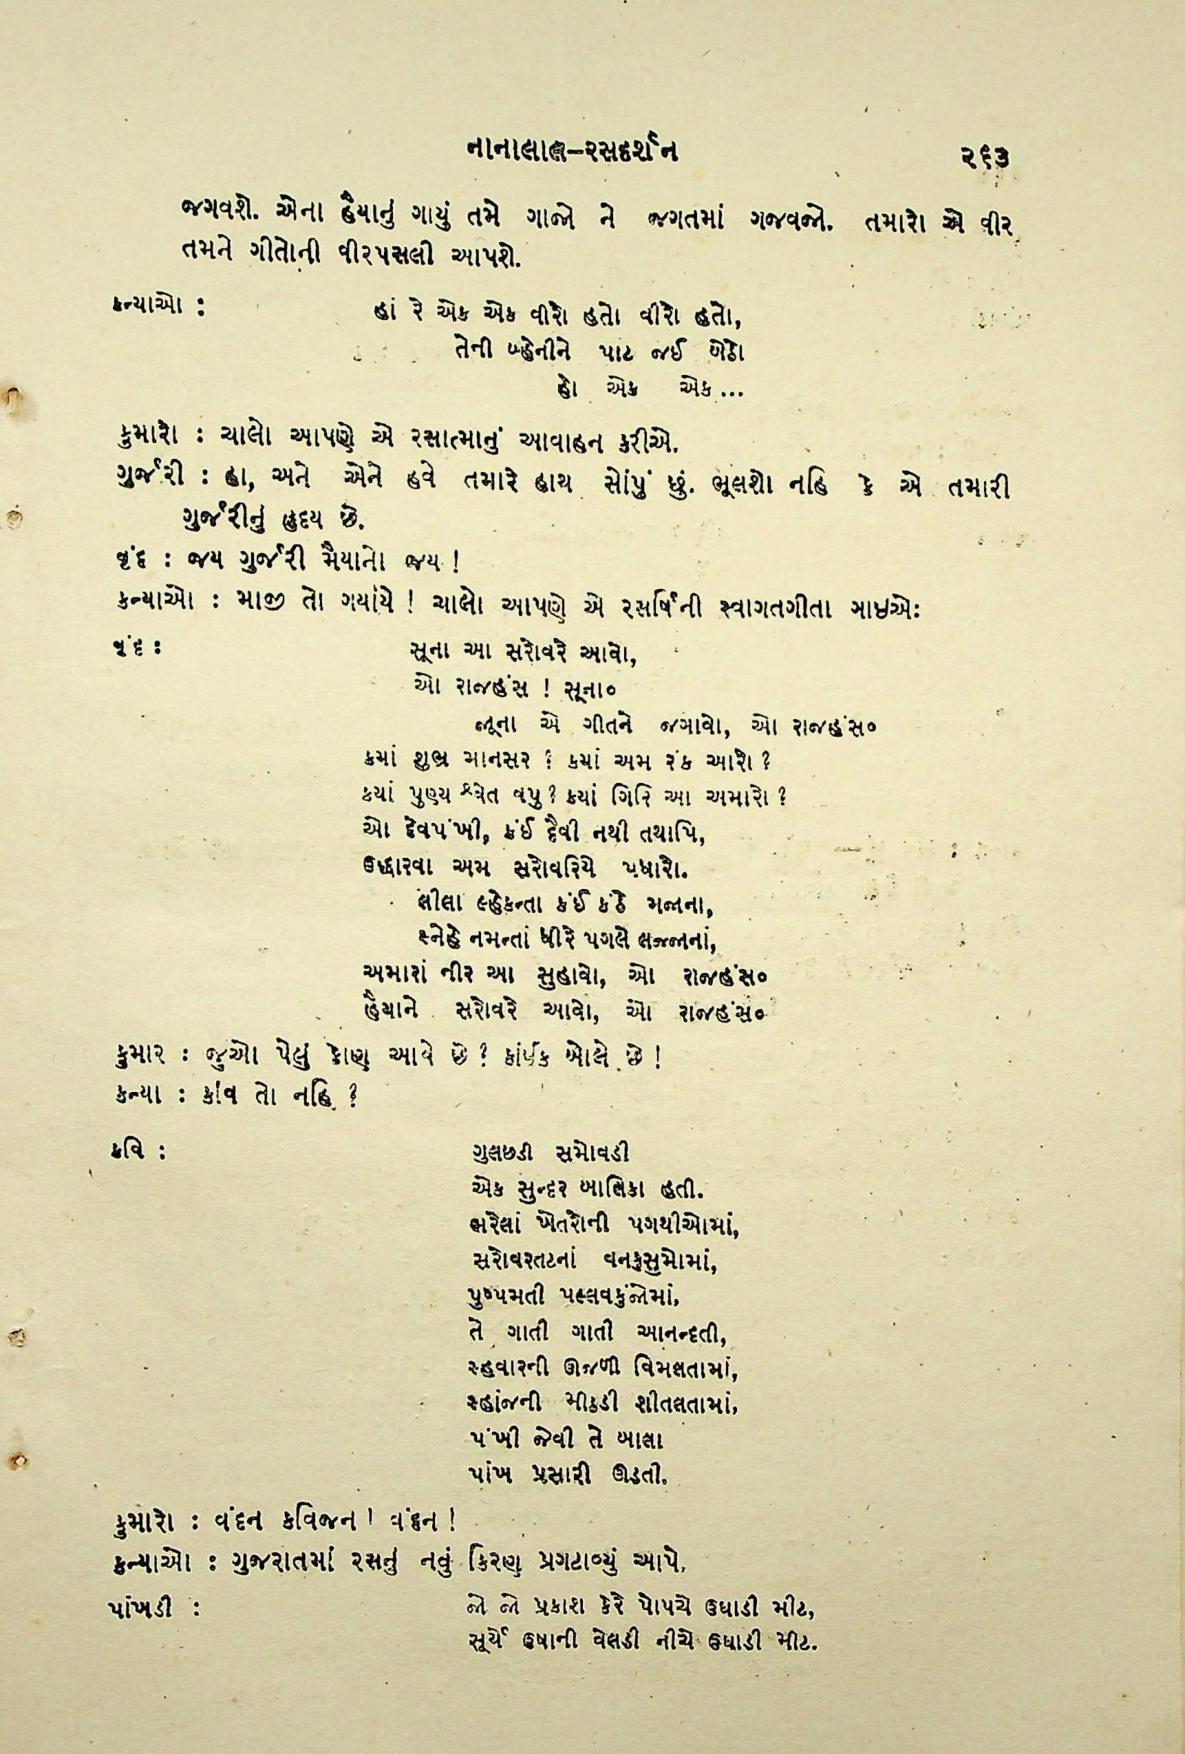 નાનાલાલ–રસદર્શન ૨૬૩
જગવશે. એના હૈયાનું ગાયું તમે ગાજો ને જગતમાં ગજવજો. તમારો એ વીર
તમને ગીતોની વીરપસલી આપશે.
કન્યાઓ : હાં રે એક એક વીરો હતો વીરો હતો,
તેની બ્હેનીને પાટ જઈ બેઠો
હો એક એક...
કુમારો : ચાલો આપણે એ રસાત્માનું આવાહન કરીએ.
ગુર્જરી : હા, અને એને હવે તમારે હાથ સોંપું છું. ભૂલશો નહિ કે એ તમારી
ગુર્જરીનું હૃદય છે.
વૃંદ : જય ગુર્જરી મૈયાનો જય !
કન્યાઓ : માજી તો ગયાંયે ! ચાલો આપણે એ રસર્ષિની સ્વાગતગીતા ગાઈએ:
વૃંદ : સૂના આ સરોવરે આવો,
ઓ રાજહંસ ! સૂના૦
જૂના એ ગીતને જગાવો, ઓ રાજહંસ૦
ક્યાં શુભ્ર માનસર ? ક્યાં અમ રંક આરો ?
ક્યાં પુણ્ય શ્વેત વપુ ? ક્યાં ગિરિ આ અમારો ?
ઓ દેવપંખી, કંઈ દૈવી નથી તથાપિ,
ઉદ્ધારવા અમ સરોવરિયે પધારો.
લીલા લ્હેકન્તા કંઈ કંઠે મજાના,
સ્નેહે નમન્તાં ધીરે પગલે લજ્જાનાં,
અમારાં નીર આ સુહાવો, ઓ રાજહંસ૦
હૈયાને સરોવરે આવો, ઓ રાજહંસ૦
કુમાર : જુઓ પેલું કોણ આવે છે ? કાંઈક બોલે છે !
કન્યા : કવિ તો નહિ ?
કવિ : ગુલછડી સમોવડી
એક સુન્દર બાલિકા હતી.
ભરેલાં ખેતરોની પગથીઓમાં,
સરોવરતટનાં વનકુસુમોમાં,
પુષ્પમતી પલ્લવકુંજોમાં,
તે ગાતી ગાતી આનન્દતી,
સ્હવારની ઊજળી વિમલતામાં,
સ્હાંજની મીઠડી શીતલતામાં,
પંખી જેવી તે બાલા
પાંખ પ્રસારી ઊડતી.
કુમારો : વંદન કવિજન ! વંદન !
કન્યાઓ : ગુજરાતમાં રસનું નવું કિરણ પ્રગટાવ્યું આપે.
પાંખડી : જો જો પ્રકાશ કેરે પોપચે ઉઘાડી મીટ,
સૂર્યે ઉષાની વેલડી નીચે ઉઘાડી મીટ.